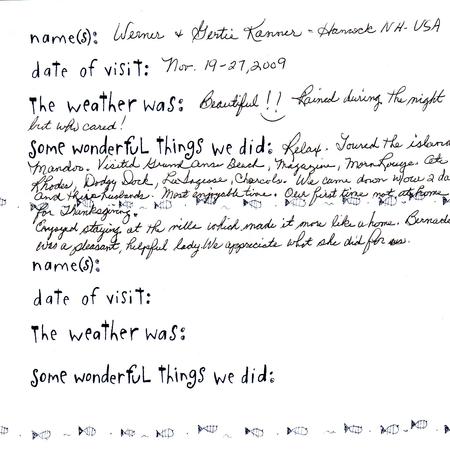 name(s): Werner & Gertie Kanner - Hancock NH - USA
date of visit: Nov. 19-27, 2009
The weather was: Beautiful!! Rained during the night
but who cared!
Some wonderful things we did: Relax. Toured the island
Mandoo. Visited Grand Anse Beach, Magazine, Morn Rouge. Ate
Rhodes, Dodgy Dock, La Sagesse, Charcols. We came down w/our 2 da
And their husbands. Most enjoyable time. Our first time not at home
for Thanksgiving.
Enjoyed staying at the villa which made it more like a home. Bernade
was a pleasant, helpful lady. We appreciate what she did for us.
name(s):
date of visit:
The weather was:
Some wonderful things we did: